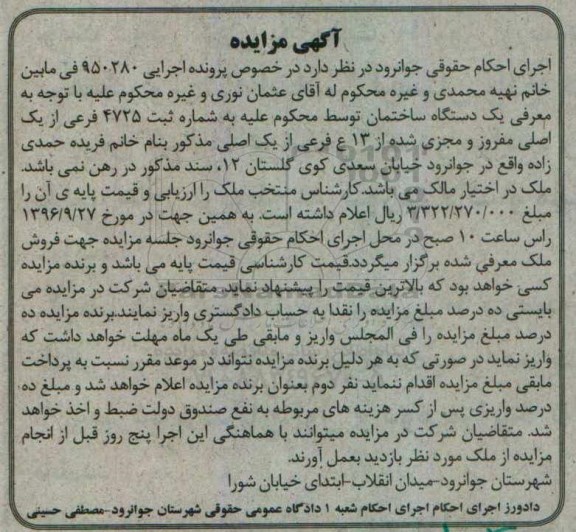 آگهی مزایده
اجرای احکام حقوقی جوانرود در نظر دارد در خصوص پرونده اجرایی ۹۵۰۲۸۰ فی مابین
خانم نهیه محمدی و غیره محکوم له آقای عثمان نوری و غیره محکوم علیه با توجه به
معرفی یک دستگاه ساختمان توسط محکوم علیه به شماره ثبت ۴۷۲۵ فرعی از یک
اصلی مفروز و مجزی شده از ۱۳ ع فرعی از یک اصلی مذکور بنام خانم فریده حمدی
زاده واقع در جوانرود خیابان سعدی کوی گلستان ۱۲، سند مذکور در رهن نمی باشد.
ملک در اختیار مالک می باشد.کارشناس منتخب ملک را ارزیابی و قیمت پایه ی آن را
مبلغ ۳/۳۲۲/۲۷۰/۰۰۰ ریال اعلام داشته است. به همین جهت در مورخ ۱۳۹۶/۹/۲۷
راس ساعت ۱۰ صبح در محل اجرای احکام حقوقی جوانرود جلسه مزایده جهت فروش
ملک معرفی شده برگزار میگردد.قیمت کارشناسی قیمت پایه می باشد و برنده مزایده
کسی خواهد بود که بالاترین قیمت را پیشنهاد نماید.متقاضیان شرکت در مزایده می
بایستی ده درصد مبلغ مزایده را نقدا به حساب دادگستری واریز نمایند.برنده مزایده ده
درصد مبلغ مزایده را فی المجلس واریز و مابقی طی یک ماه مهلت خواهد داشت که
واریز نماید در صورتی که به هر دلیل برنده مزایده نتواند در موعد مقرر نسبت به پرداخت
مابقی مبلغ مزایده اقدام ننماید نفر دوم بعنوان برنده مزایده اعلام خواهد شد و مبلغ ده
درصد واریزی پس از کسر هزینه های مربوطه به نفع صندوق دولت ضبط و اخذ خواهد
شد. متقاضیان شرکت در مزایده میتوانند با هماهنگی این اجرا پنج روز قبل از انجام
مزایده از ملک مورد نظر بازدید بعمل آورند.
شهرستان جوانرود-میدان انقلاب-ابتدای خیابان شورا
دادورز اجرای احکام اجرای احکام شعبه ۱ دادگاه عمومی حقوقی شهرستان جوانرود-مصطفی حسینی